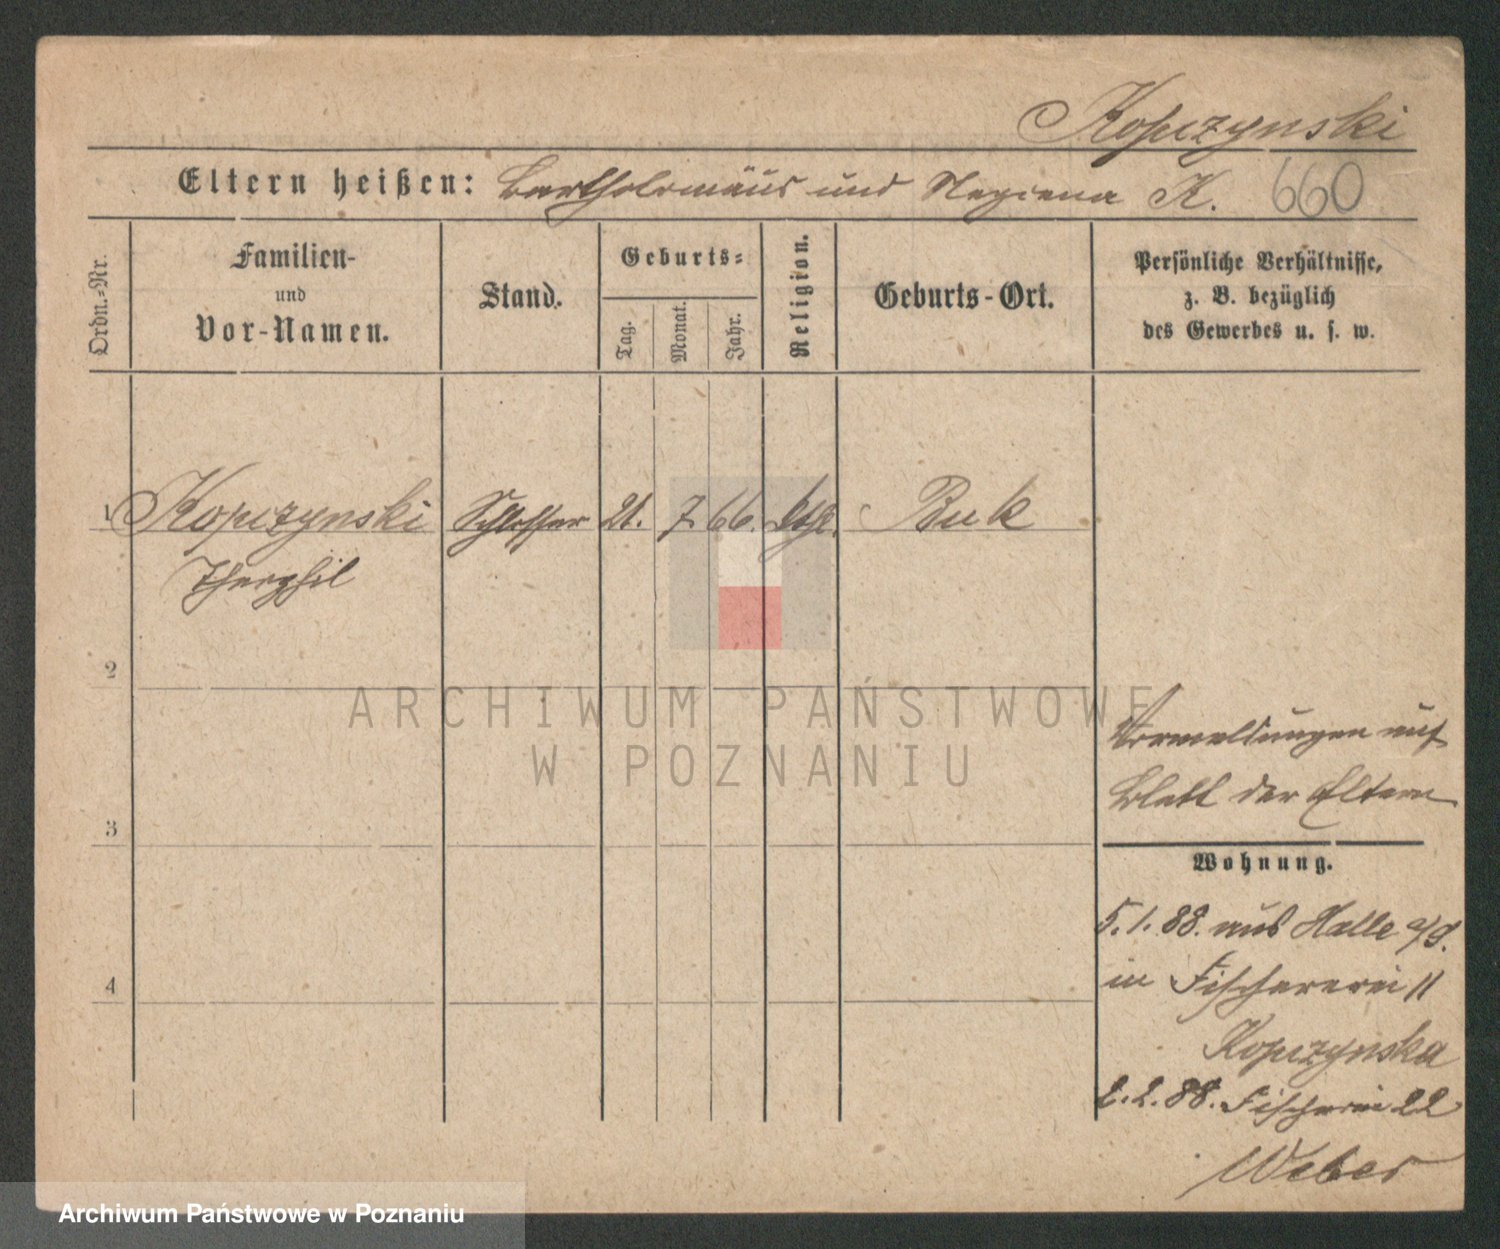 Kopczynski
Eltern heißen: Bartholomäus und Regiena K. 660
Ordn.-Nr.
Familien-
und
Vor-Namen.
Stand.
Geburts-
Tag.
Monat.
Jahr.
Religion.
Geburts-Ort.
Persönliche Verhältnisse,
z. B. bezüglich
des Gewerbes u. s. w.
1 Kopczynski Schlosser 21. 7 66. kth. Buk
Theophil
2
3
4
Vormeldungen auf
Blatt der Eltern
Wohnung.
5.1.88. aus Halle a/S.
in Fischererei 11
Kopczynska
2.2.88. Fischerei 22
Weber
ARCHIWUM PAŃSTWOWE
W POZNANIU
Archiwum Państwowe w Poznaniu